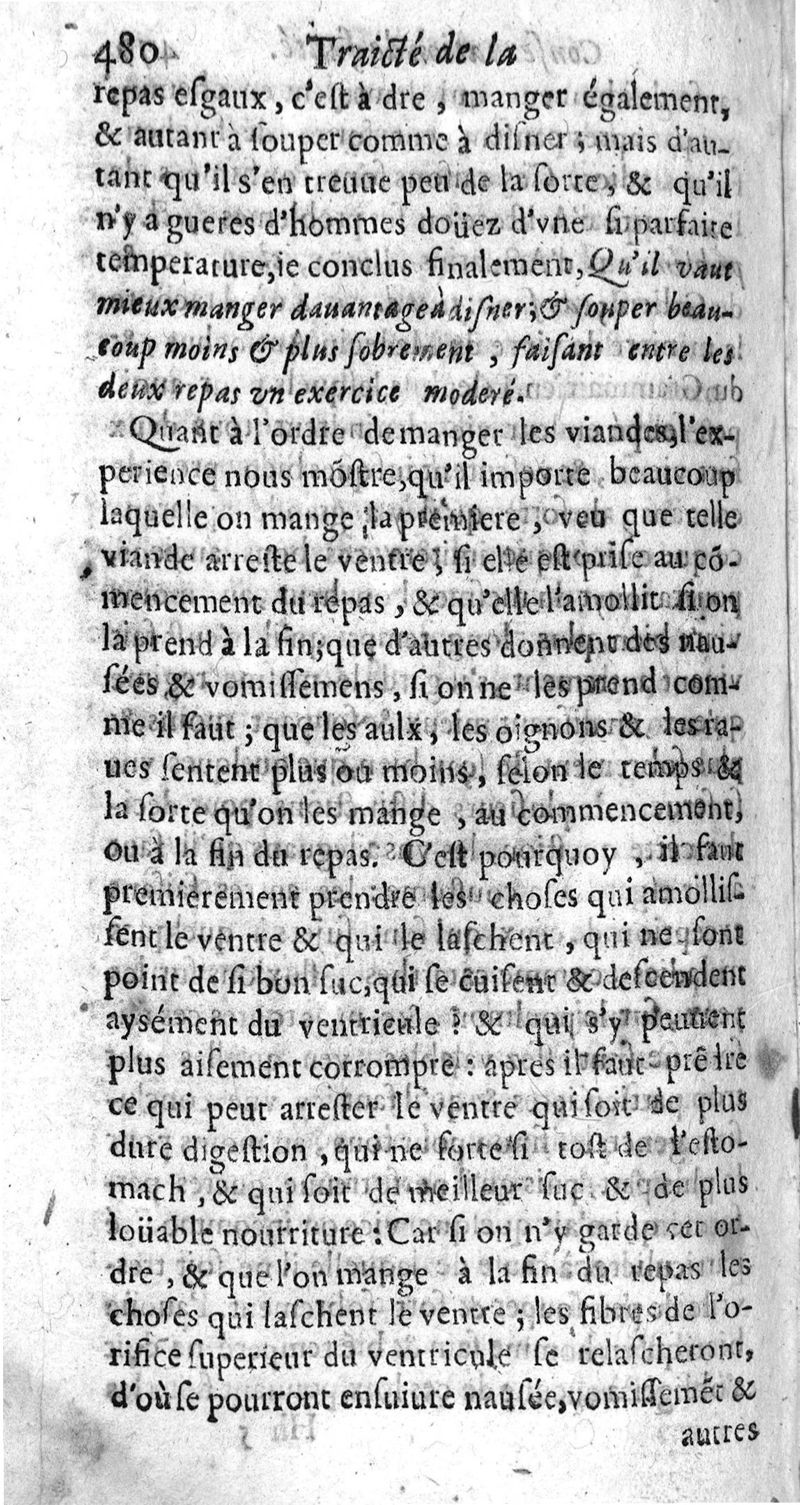 480 Traicté de la
repas eſgaux, c'eſt à dre, manger également,
& autant à ſouper comme à diſner ; mais d'au-
tant qu'il s'en treuue peu de la ſorte, & qu'il
n'y a gueres d'hommes doüez d'vne ſi parfaite
temperature, ie conclus finalement, Qu'il vaut
mieux manger dauantage à diſner; & ſouper beau-
coup moins & plus ſobrement, faiſant entre les
deux repas vn exercice moderé.
Quant à l'ordre de manger les viandes, l'ex-
perience nous mõſtre, qu'il importe beaucoup
laquelle on mange la premiere, veu que telle
viande arreſte le ventre, ſi elle eſt priſe au cõ-
mencement du repas, & qu'elle l'amollit ſi on
la prend à la fin; que d'autres donnent des nau-
ſées & vomiſſemens, ſi on ne les prend com-
me il faut ; que les aulx, les oignons & les ra-
ues ſentent plus ou moins, ſelon le temps &
la ſorte qu'on les mange, au commencement,
ou à la fin du repas. C'eſt pourquoy, il faut
premierement prendre les choſes qui amolliſ-
ſent le ventre & qui le laſchent, qui ne ſont
point de ſi bon ſuc, qui ſe cuiſent & deſcendent
aysément du ventricule ? & qui s'y peuuent
plus aiſement corrompre : apres il faut prẽdre
ce qui peut arreſter le ventre qui ſoit de plus
dure digeſtion, qui ne ſorte ſi toſt de l'eſto-
mach, & qui ſoit de meilleur ſuc & de plus
loüable nourriture : Car ſi on n'y garde cet or-
dre, & que l'on mange à la fin du repas les
choſes qui laſchent le ventre ; les fibres de l'o-
rifice ſuperieur du ventricule ſe relaſcheront,
d'où ſe pourront enſuiure nauſée, vomiſſemẽt &
autres